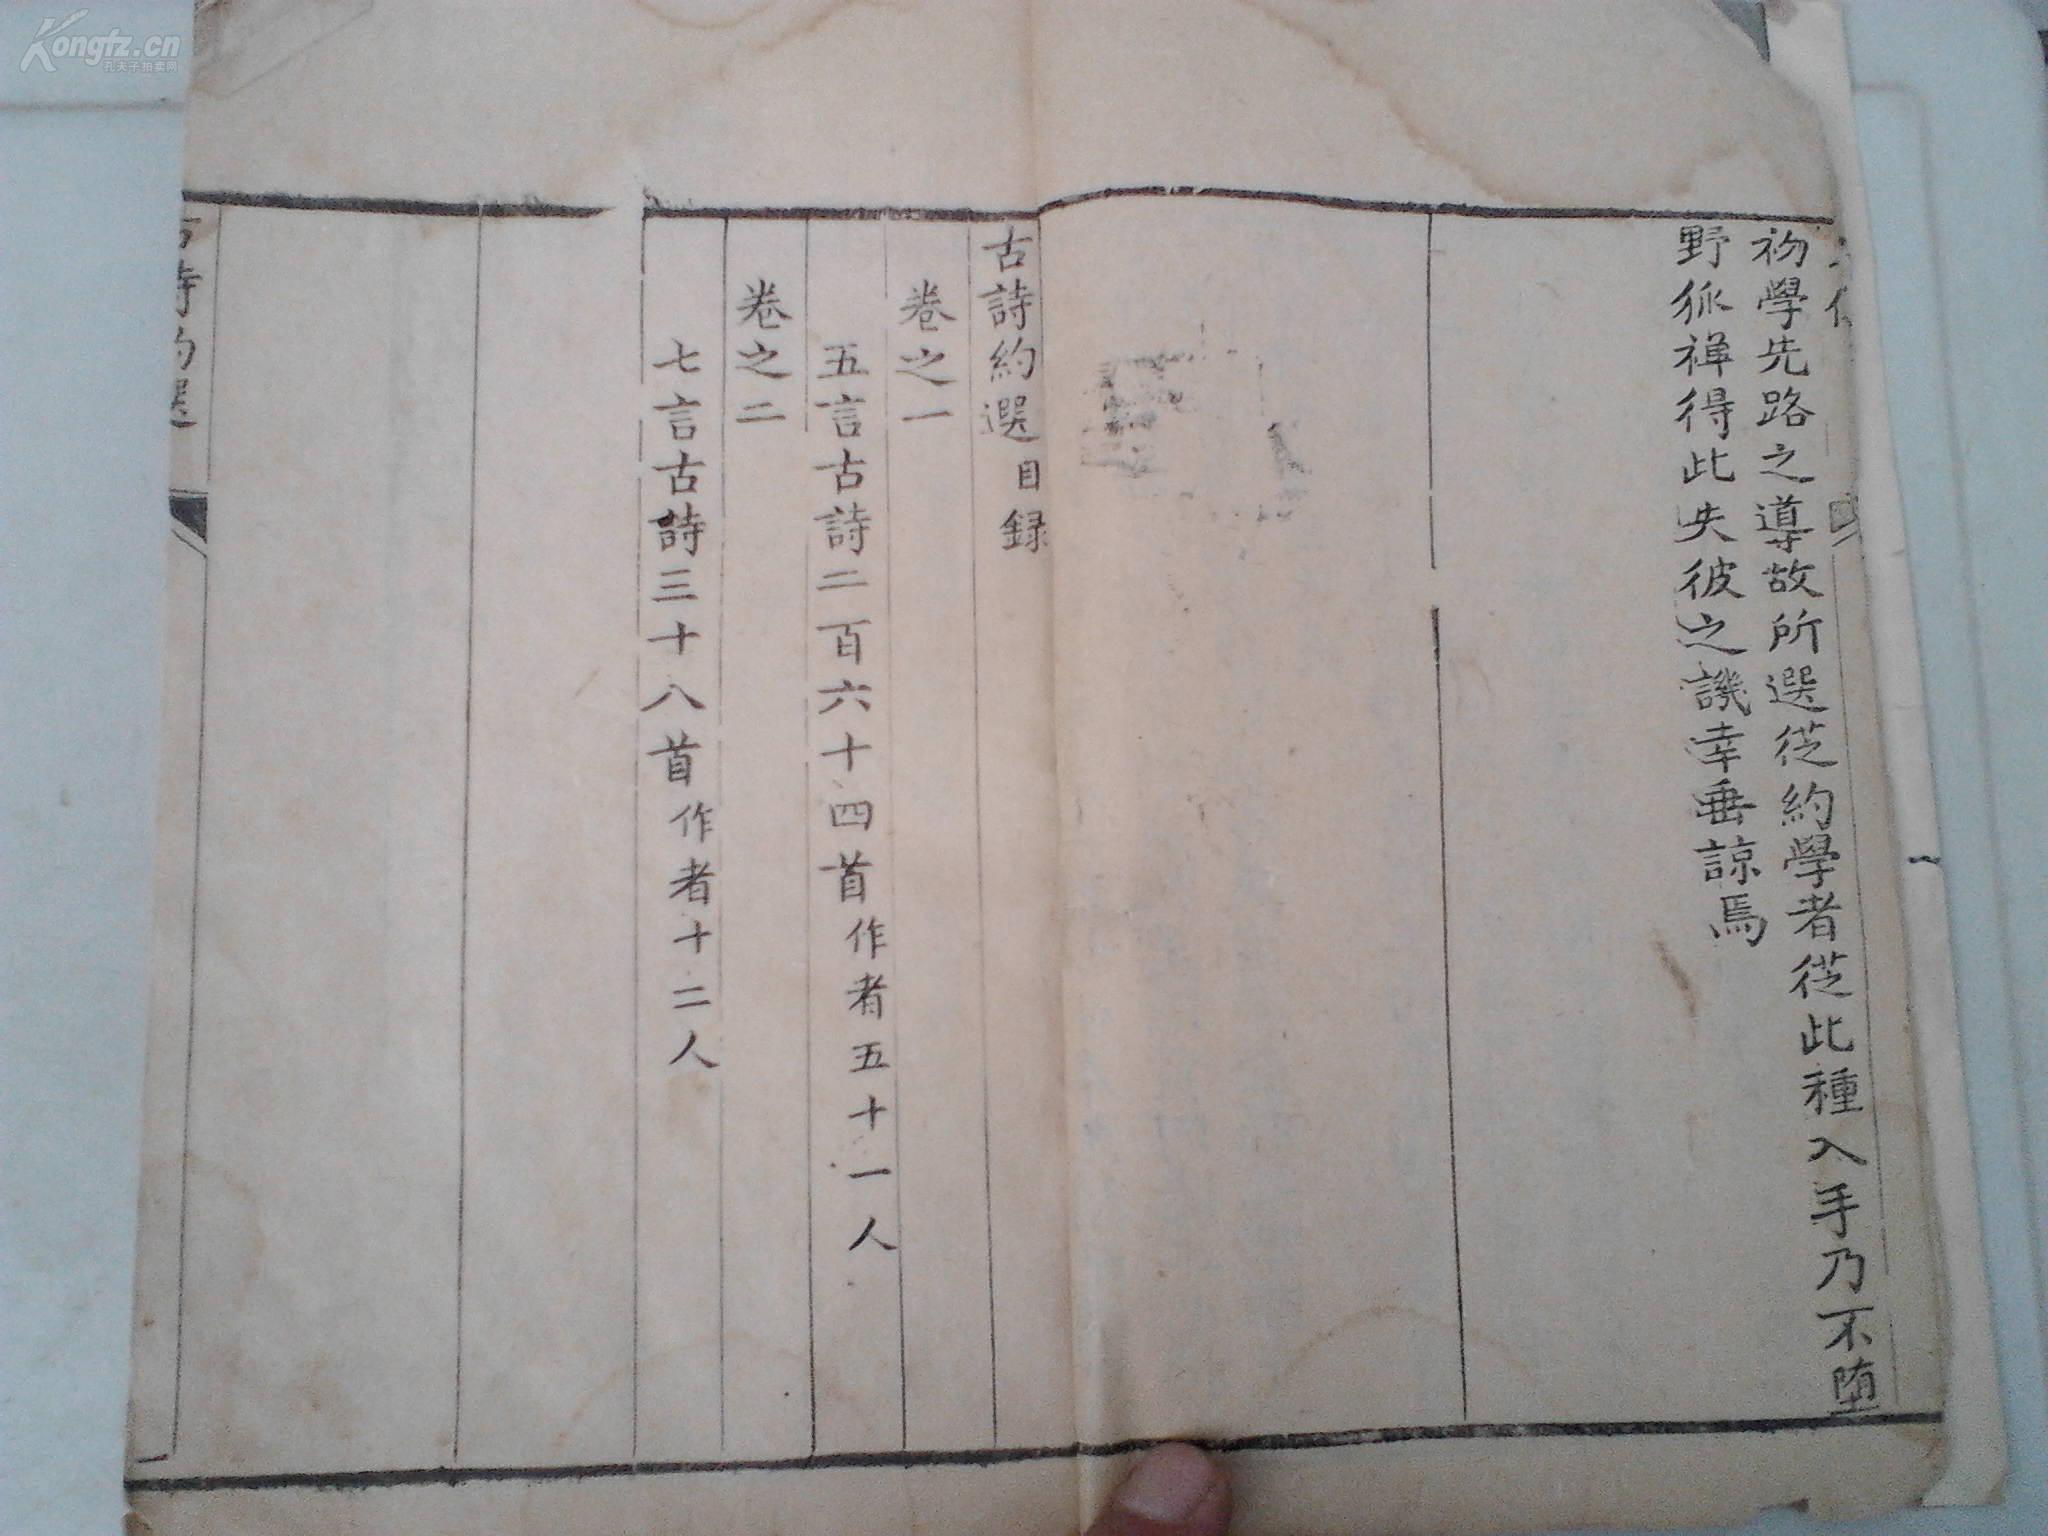 初學先路之導故所選從約學者從此種入手乃不堕
野狐禅得此失彼之譏幸垂諒焉
古詩約選目録
卷之一
五言古詩二百六十四首作者五十一人
卷之二
七言古詩三十八首作者十二人
古詩約選
Kongfz.cn
孔夫子拍卖网